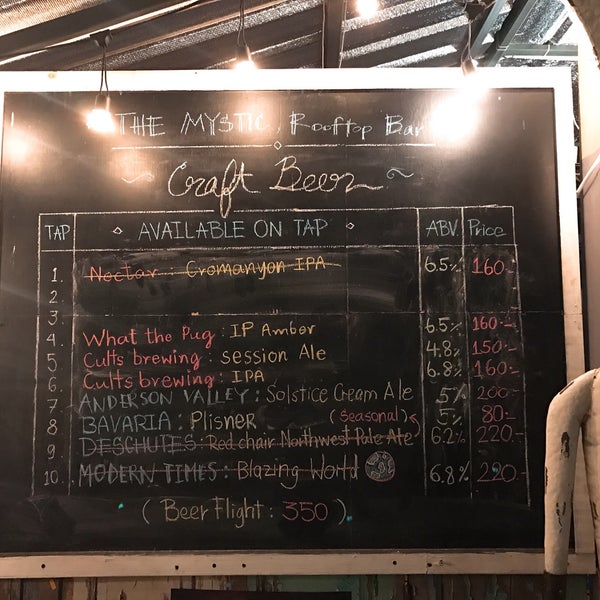 THE MYSTIC, Rooftop Bar
~ Craft Beer ~
TAP AVAILABLE ON TAP ABV. Price
1. Nectar : Cromanyon IPA 6.5% 160.-
2.
3.
4. What the Pug : IP Amber 6.5% 160.-
5. Cults brewing : Session Ale 4.8% 150.-
6. Cults brewing : IPA 6.8% 160.-
7. ANDERSON VALLEY : Solstice Cream Ale 5% 200.-
8. BAVARIA : Plisner (seasonal) 5% 80.-
9. DESCHUTES : Red chair Northwest Pale Ale 6.2% 220.-
10. MODERN TIMES : Blazing World 6.8% 220.-
(Beer Flight : 350).